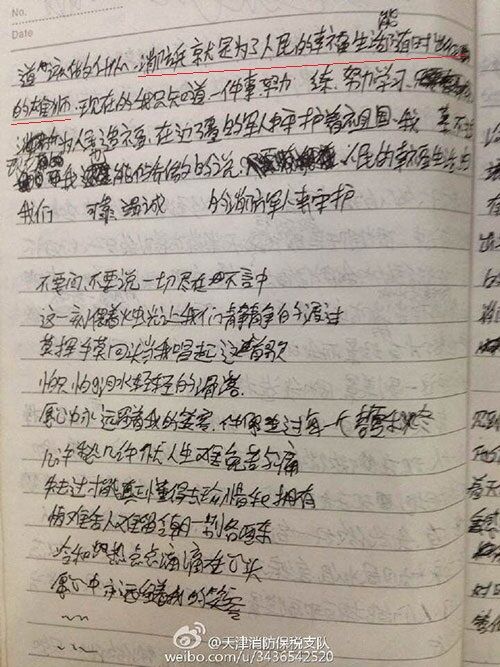 No.
Date
能
道该做的什么。消防兵就是为了人民的幸福生活随时
的雄师。现在的我只知道一件事努力 练、努力学习
为人民 在边疆的军人守护着祖国。我
我 能骄傲的的说 人民的幸福生活由
我们 可靠 的消防军人来守护
不要问,不要说一切尽在不言中
这一刻偎着烛光让我们静静的渡过
莫挥手莫回头当我唱起这首歌
怕只怕泪水轻轻的滑落
愿心中永远留着我的笑容,伴你走过每一个春夏秋冬
几许愁几许忧人生难免苦与痛
失去过才能真正懂得去珍惜和拥有
情难舍人难留今朝一别各西东
冷和热点点滴滴在心头
愿心中永远留着我的笑容
@天津消防保税支队
weibo.com/u/3436542520